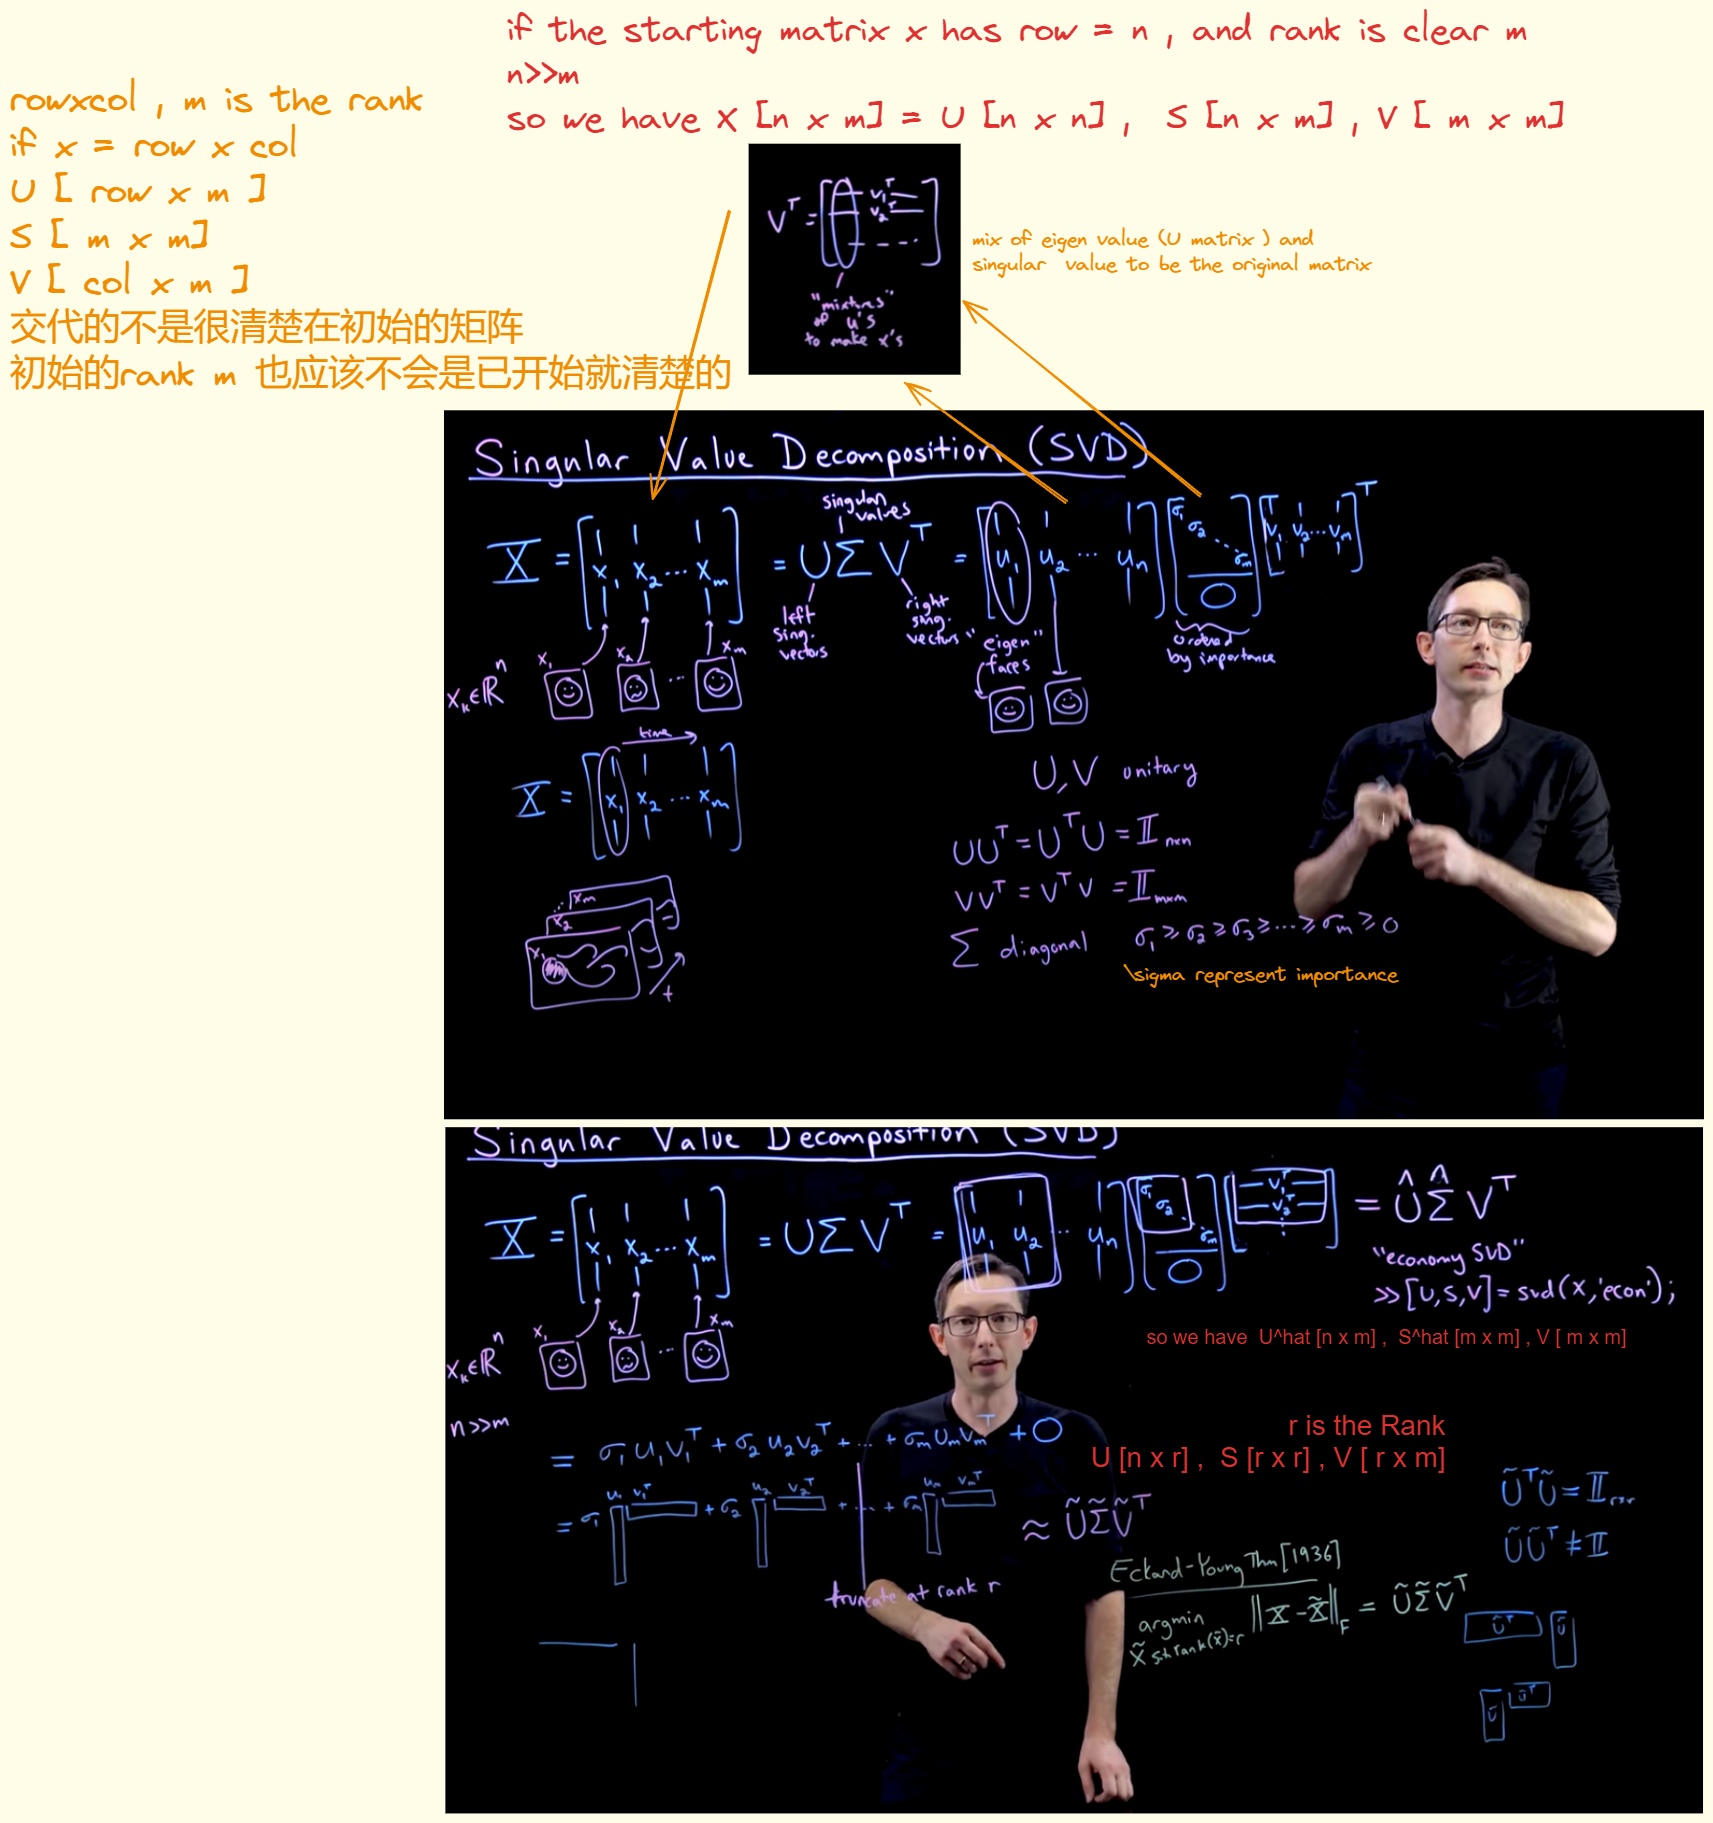 if the starting matrix x has row = n , and rank is clear m
n>>m
so we have X [n x m] = U [n x n] , S [n x m] , V [ m x m]
rowxcol , m is the rank
if x = row x col
U [ row x m ]
S [ m x m]
V [ col x m ]
交代的不是很清楚在初始的矩阵
初始的rank m 也应该不会是已开始就清楚的
V^T = [ v₁^T
v₂^T ]
"mixtures"
of u's
to make x's
mix of eigen value (U matrix ) and
singular value to be the original matrix
Singular Value Decomposition (SVD)
singular values
X = [ x₁ x₂ ... xₘ ] = U Σ V^T = [ u₁ u₂ ... uₙ ] [ σ₁ σ₂ ⋱ σₘ 0 ] [ v₁ v₂ ... vₘ ]^T
left sing. vectors
right sing. vectors
"eigen" faces
ordered by importance
xₖ ∈ ℝⁿ
x₁ x₂ ... xₘ
time
X = [ x₁ x₂ ... xₘ ]
xₘ
x₂
x₁
t
U, V unitary
UU^T = U^T U = 𝕀 nxn
VV^T = V^T V = 𝕀 mxm
Σ diagonal σ₁ ≥ σ₂ ≥ σ₃ ≥ ... ≥ σₘ ≥ 0
\sigma represent importance
Singular Value Decomposition (SVD)
X = [ x₁ x₂ ... xₘ ] = U Σ V^T = [ u₁ u₂ ... uₙ ] [ σ₁ σ₂ ⋱ σₘ 0 ] [ v₁^T v₂^T ⋮ ] = Û Σ̂ V^T
"economy SVD"
>> [U,S,V] = svd(X,'econ');
so we have U^hat [n x m] , S^hat [m x m] , V [ m x m]
xₖ ∈ ℝⁿ
x₁ x₂ ... xₘ
n>>m
= σ₁ u₁ v₁^T + σ₂ u₂ v₂^T + ... + σₘ uₘ vₘ^T + 0
r is the Rank
U [n x r] , S [r x r] , V [ r x m]
u₁ v₁^T u₂ v₂^T uₘ vₘ^T
= σ₁ + σ₂ + ... + σₘ
≈ Ũ Σ̃ Ṽ^T
truncate at rank r
Ũ^T Ũ = 𝕀 rxr
Ũ Ũ^T ≠ 𝕀
Eckard-Young Thm [1936]
argmin ||X - X̃||_F = Ũ Σ̃ Ṽ^T
X̃ s.t. rank(X̃)=r
Ũ^T Ũ
Ũ Ũ^T